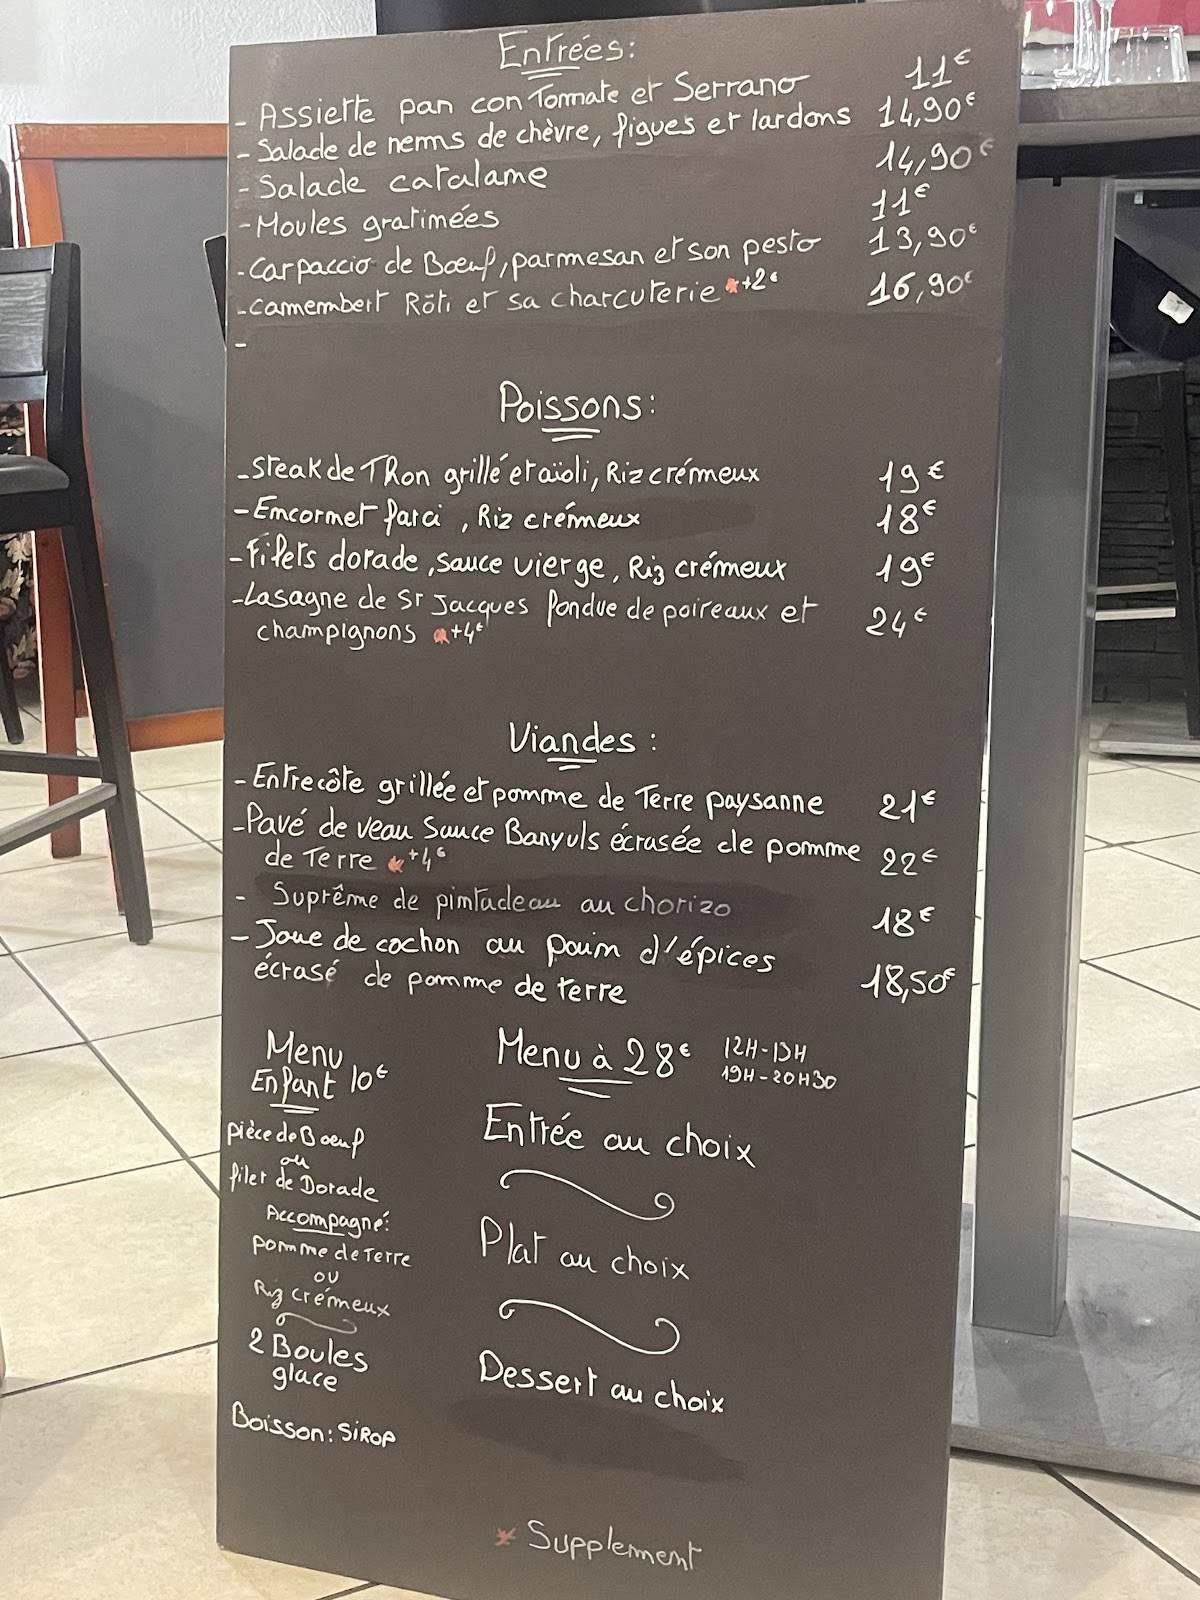 Entrées:
- Assiette pan con Tomate et Serrano 11€
- Salade de nems de chèvre, figues et lardons 14,90€
- Salade catalane 14,90€
- Moules gratinées 11€
- Carpaccio de Bœuf, parmesan et son pesto 13,90€
- camembert Rôti et sa charcuterie *+2€ 16,90€
-
Poissons:
- Steak de Thon grillé et aïoli, Riz crémeux 19€
- Encornet farci, Riz crémeux 18€
- Filets dorade, sauce vierge, Riz crémeux 19€
- Lasagne de St Jacques fondue de poireaux et 24€
champignons *+4€
Viandes:
- Entrecôte grillée et pomme de Terre paysanne 21€
- Pavé de veau Sauce Banyuls écrasée de pomme 22€
de Terre *+4€
- Suprême de pintadeau au chorizo 18€
- Joue de cochon au pain d'épices 18,50€
écrasé de pomme de terre
Menu
Enfant 10€
pièce de Boeuf
ou
filet de Dorade
Accompagné:
pomme de Terre
ou
Riz crémeux
2 Boules
glace
Boisson: SIROP
Menu à 28€ 12H-13H
19H-20H30
Entrée au choix
Plat au choix
Dessert au choix
* Supplement